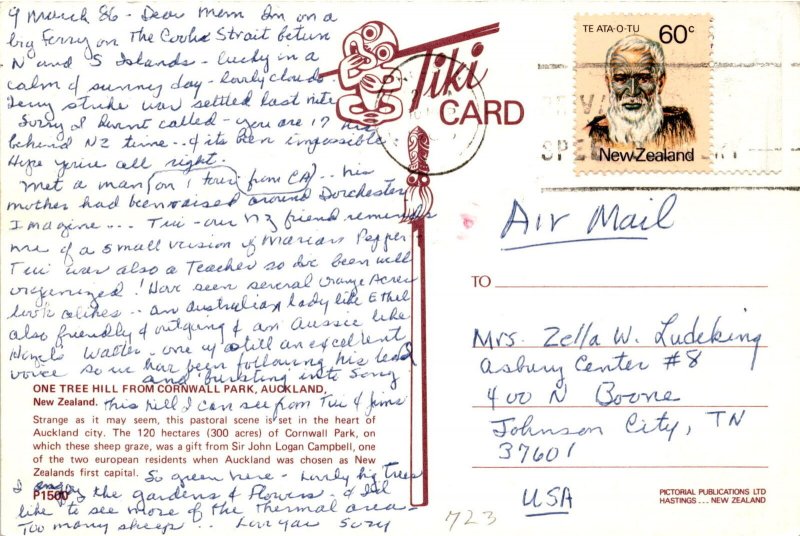 9 March 86 - Dear Mom Im on a
big Ferry on The Cooks Strait between
N and S Islands - lucky in a
calm & sunny day - lovely clouds
Ferry strike was settled last nite
Sorry I haven't called - you are 17 hrs
behind NZ time - & its been impossible
Hope you're all right.
Met a man (on 1 tour from CA) .. his
mother had been raised around Dorchester
Imagine ... Tui - our NZ friend reminds
me of a small version of Marian Pepper
Tui was also a Teacher so I've been well
organized! Have seen several Orange Acres
look alikes - an Australian lady like Ethel
also friendly & outgoing & an Aussie like
Watter - one w/ still an excellent
voice so we have been following his lead
and bursting into song
ONE TREE HILL FROM CORNWALL PARK, AUCKLAND,
New Zealand. This hill I can see from Tui & Jims
Strange as it may seem, this pastoral scene is set in the heart of
Auckland city. The 120 hectares (300 acres) of Cornwall Park, on
which these sheep graze, was a gift from Sir John Logan Campbell, one
of the two european residents when Auckland was chosen as New
Zealands first capital. So green here - Lovely big trees
I enjoy the gardens & Flowers - & I'd
P1500
like to see more of the thermal area -
Too many sheep .. Love you Suzy
Tiki
CARD
TE ATA-O-TU 60c
New Zealand
Air Mail
TO
Mrs. Zella W. Ludeking
Asbury Center #8
400 N Boone
Johnson City, TN
37601
USA
PICTORIAL PUBLICATIONS LTD
HASTINGS ... NEW ZEALAND
723